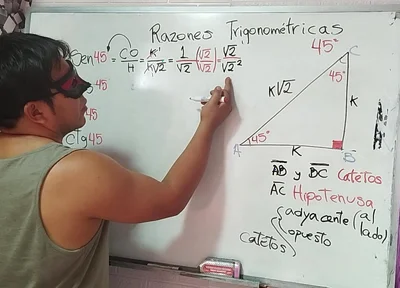 Razones Trigonométricas
Sen 45 = CO/H = K/K√2 = 1/√2 (√2/√2) = √2/√2²
45
45
Ctg 45
45°
C
45°
K√2
K
A
45°
K
B
AB y BC Catetos
AC Hipotenusa
Catetos { adyacente (al lado)
opuesto